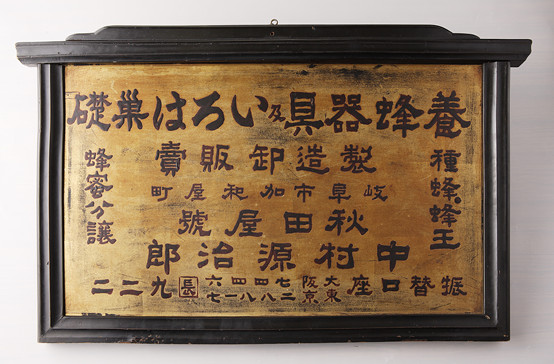 養蜂器具及いろは巣礎
種蜂蜂王
製造卸販賣
岐阜市加和屋町
秋田屋號
中村源治郎
蜂蜜分讓
振替口座 東京 大阪 七四四六 二八八一七 長 九二二